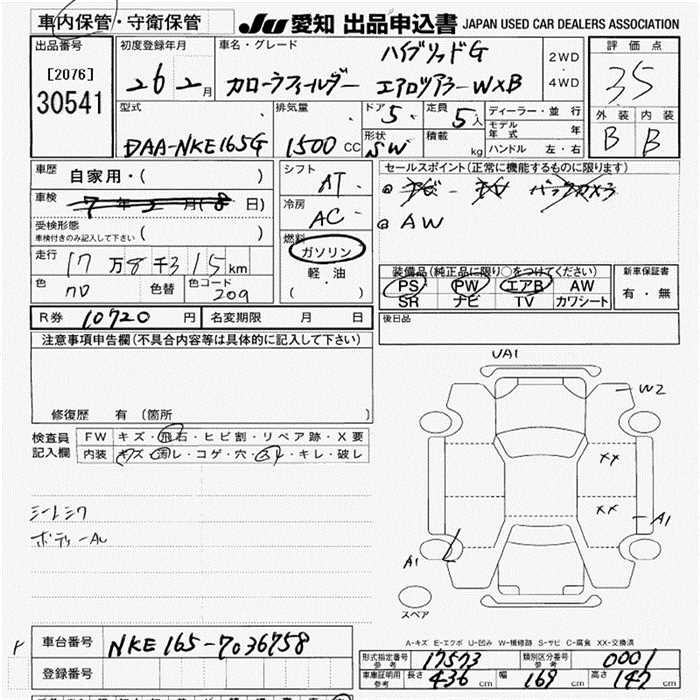 車内保管・守衛保管 JU 愛知 出品申込書 JAPAN USED CAR DEALERS ASSOCIATION
出品番号 初度登録年月 車名・グレード ハイブリッドG 2WD・4WD 評価点
[2076] 26 2月 カローラフィールダー エアロツアラーWxB 35
30541 型式 排気量 ドア 5 定員 5人 ディーラー・並行 外装 内装
DAA-NKE165G 1500CC 形状 SW 積載 kg モデル年式 年 B B
ハンドル 左・右
車歴 自家用・( ) シフト AT セールスポイント(正常に機能するものに限ります)
車検 7年2月(8日) 冷房 AC
受検形態 車検付きのみ記入して下さい ( ) AW
燃料 ガソリン・軽油 ( )
走行 17万8千315km 装備品(純正品に限り○をつけてください) 新車保証書
色 色替 色コード 209 PS PW エアB AW 有・無
SR ナビ TV カワシート
R券 10720円 名変期限 月 日 後日品
注意事項申告欄(不具合内容等は具体的に記入して下さい)
UA1
W2
修復歴 有 (箇所 )
検査員記入欄 FW キズ・飛石・ヒビ割・リペア跡・X要
内装 キズ・汚レ・コゲ・穴・スレ・キレ・破レ
XX
XX
シートシワ
A1
ボディーAU
A1
スペア
A-キズ E-エクボ U-凹み W-補修跡 S-サビ C-腐食 XX-交換済
車台番号 NKE165-7036758
登録番号
形式指定番号 参考 17573 類別区分番号 参考 0001
車庫証明用 参考 長さ 436cm 幅 169cm 高さ 147cm